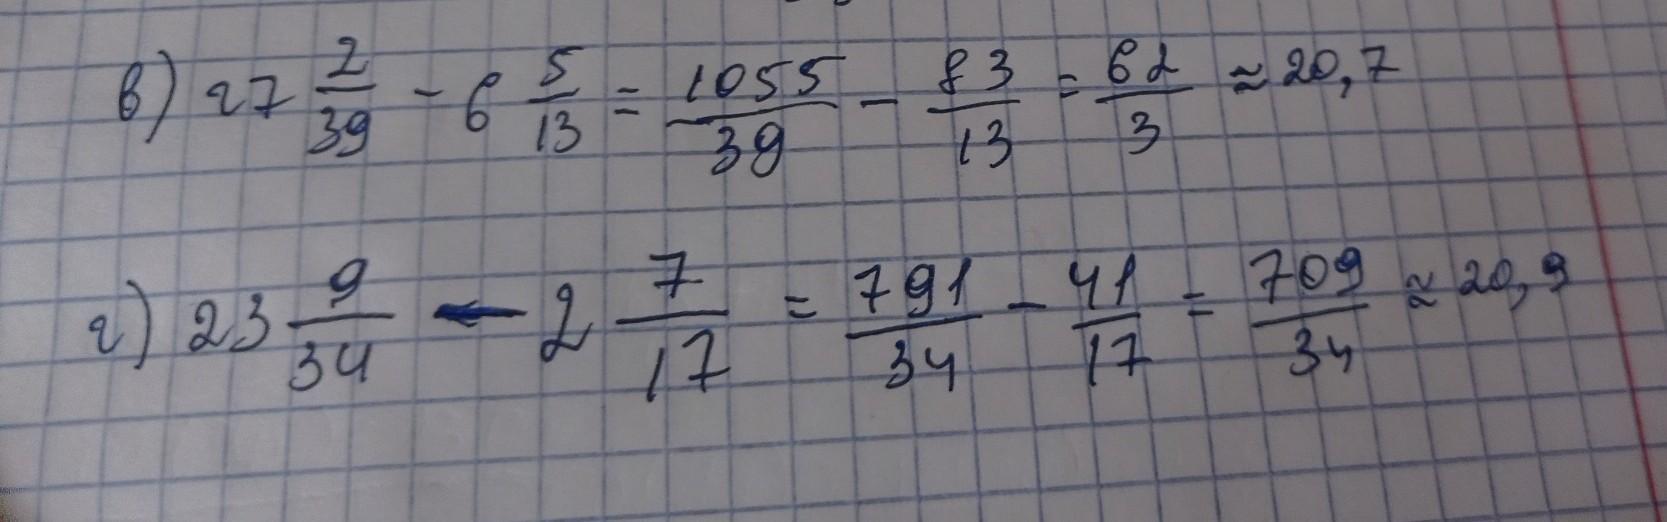 в) 27 2/39 - 6 5/13 = 1055/39 - 83/13 = 62/3 ≈ 20,7
г) 23 9/34 - 2 7/17 = 791/34 - 41/17 = 709/34 ≈ 20,9